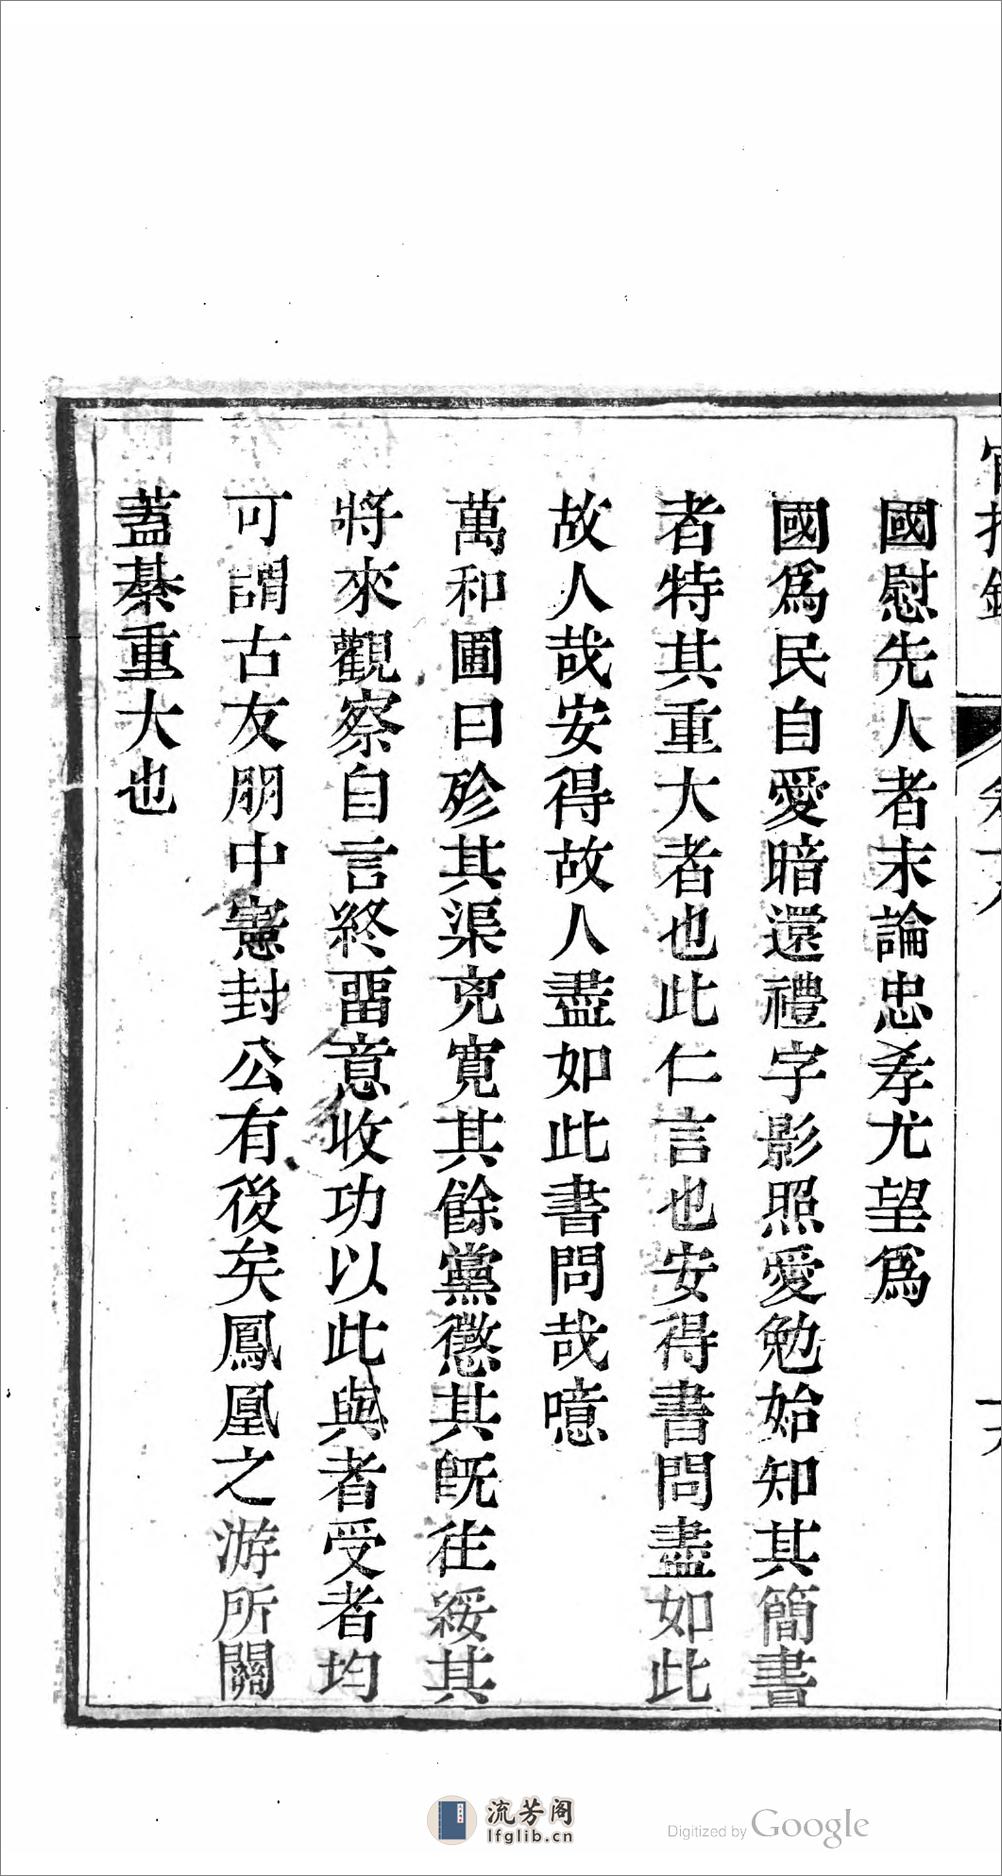 國慰先人者末論忠孝尤望爲
國爲民自愛暗還禮字影照愛勉始知其簡書
者特其重大者也此仁言也安得書問盡如此
故人哉安得故人盡如此書問哉噫
萬和圃曰殄其渠兇寬其餘黨懲其旣徃綏其
將來觀察自言終畱意收功以此與者受者均
可謂古友朋中憲封公有後矣鳳凰之游所關
蓋綦重大也
流芳阁
lfglib.cn
Digitized by Google